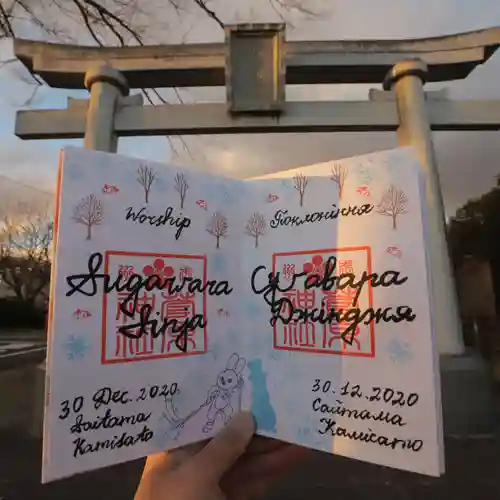 Worship
Sugawara
Jinja
30 Dec. 2020
Saitama
Kamisato
Поклоніння
Суґавара
Джінджя
30.12.2020
Сайтама
Камісато